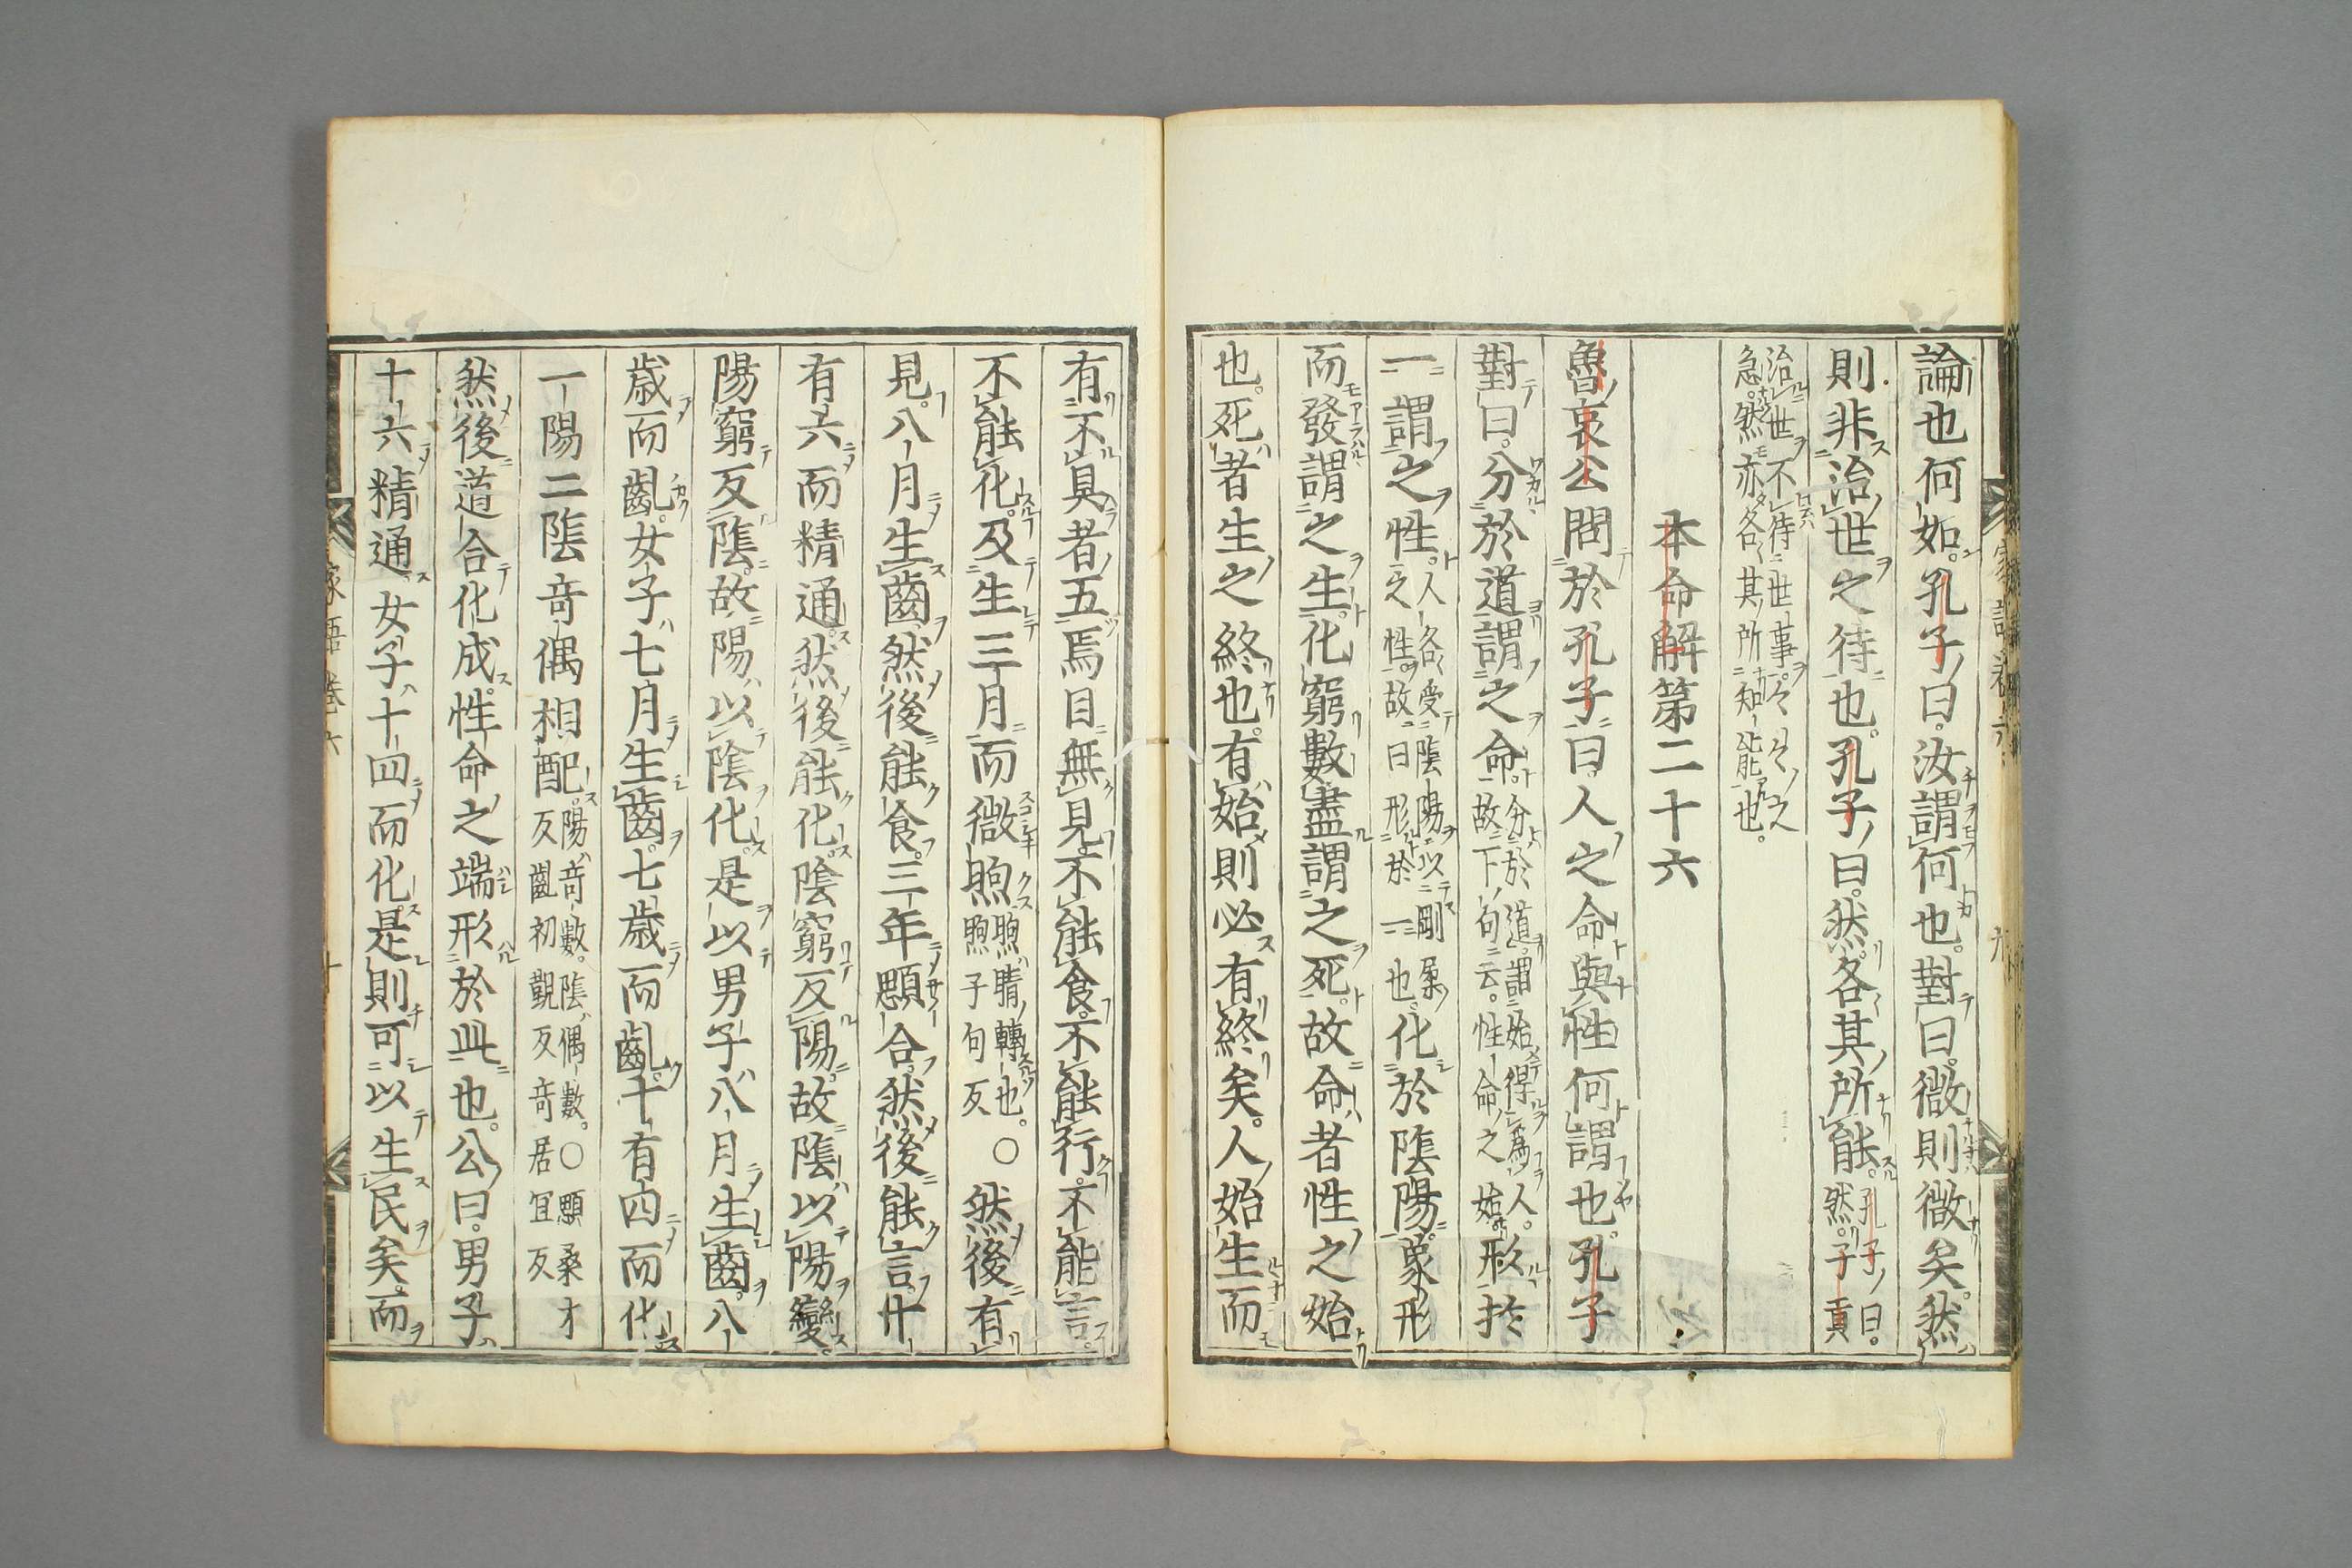 論也何如孔子曰汝謂何也對曰微則微矣然
則非治世之待也孔子曰然各其所能孔子曰然子貢
治世不待世事世事之急然亦各其所知能也
本命解第二十六
魯哀公問於孔子曰人之命與性何謂也孔子
對曰分於道謂之命分於道謂始得爲人故下句云性命之始形於
一謂之性人各受陰陽以剛柔之性故曰形於一也化於陰陽象形
而發謂之生化窮數盡謂之死故命者性之始
也死者生之終也有始則必有終矣人始生而
有不具者五焉目無見不能食不能行不能言
不能化及生三月而微煦煦睛轉也煦子句反○然後有
見八月生齒然後能食三年顋合然後能言十
有六而精通然後能化陰窮反陽故陰以陽變
陽窮反陰故陽以陰化是以男子八月生齒八
歲而齔女子七月生齒七歲而齔十有四而化
一陽二陰奇偶相配陽奇數陰偶數○顋桑才反齔初覲反奇居宜反
然後道合化成性命之端形於此也公曰男子
十六精通女子十四而化是則可以生民矣而
家語卷六
九
家語卷六
十